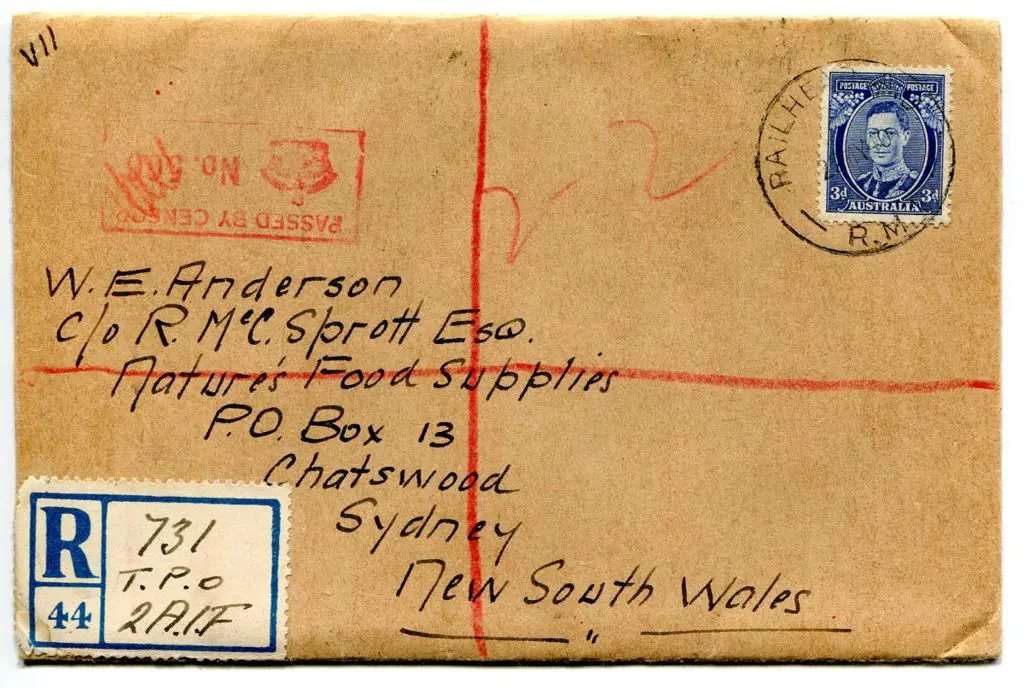 VII
PASSED BY CENSOR
No. 506
RAILHE
R.M.
POSTAGE POSTAGE
3d 3d
AUSTRALIA
2-2
W. E. Anderson
c/o R. McC. Sprott Esq.
Nature's Food Supplies
P.O. Box 13
Chatswood
Sydney
New South Wales
R
44
731
T.P.O
2A.I.F